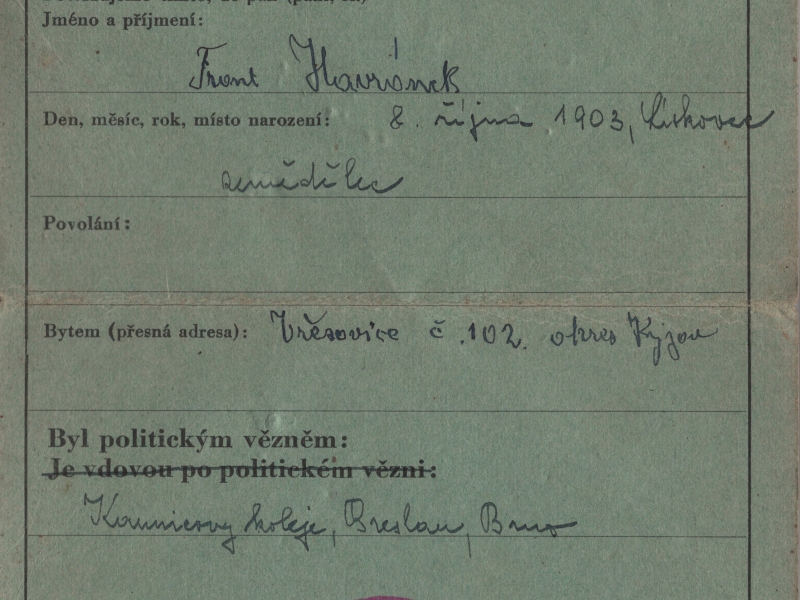 Jméno a příjmení:
Frant Havránek
Den, měsíc, rok, místo narození: 8. října 1903, Liskovec
zemědělec
Povolání:
Bytem (přesná adresa): Vřesovice č. 102. okres Kyjov
Byl politickým vězněm:
Je vdovou po politickém vězni:
Kaunicovy koleje, Breslau, Brno